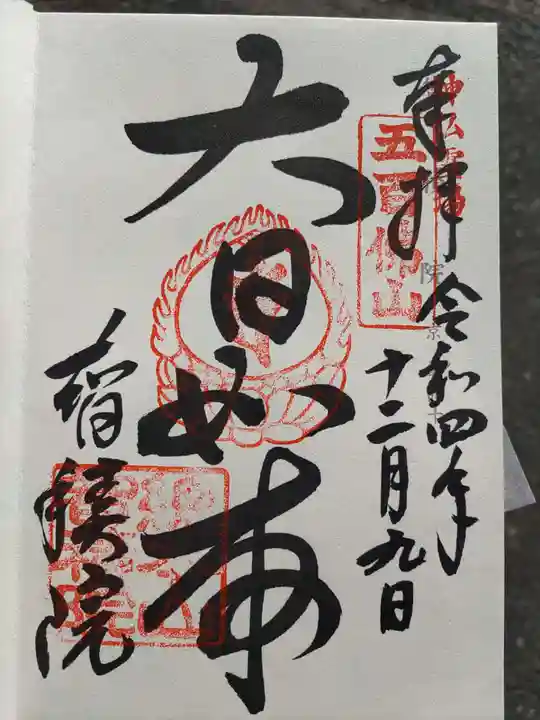 奉拝
神仏霊場
五百佛山
令和四年
十二月九日
大日如来
智積院